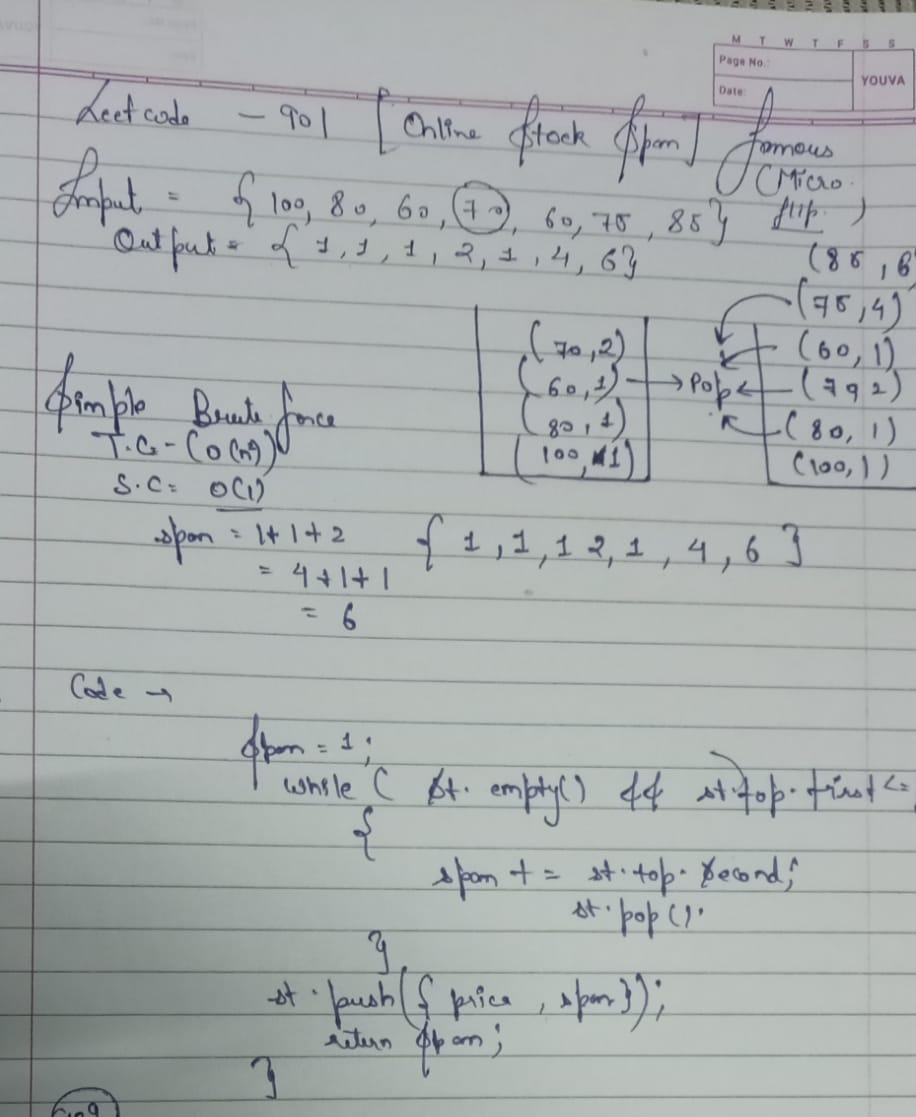 M T W T F S S
Page No.:
Date:
YOUVA
Leetcode - 901 [Online Stock Span] famous
(Micro.
flip. )
Input = { 100, 80, 60, 70, 60, 75, 85}
Output = { 1, 1, 1, 2, 1, 4, 6}
(85, 6
(75, 4)
(70, 2) (60, 1)
(60, 1) → Pop ← (792)
(80, 1) (80, 1)
(100, 1) (100, 1)
Simple Brute force
T.C - (O(n²)
S.C = O(1)
span = 1+1+2 { 1, 1, 1 2, 1, 4, 6 }
= 4+1+1
= 6
Code →
Span = 1;
while ( st. empty() && st.top.first <=
{
span + = st.top. Second;
st.pop();
}
st.push({ price, span});
return Span;
}